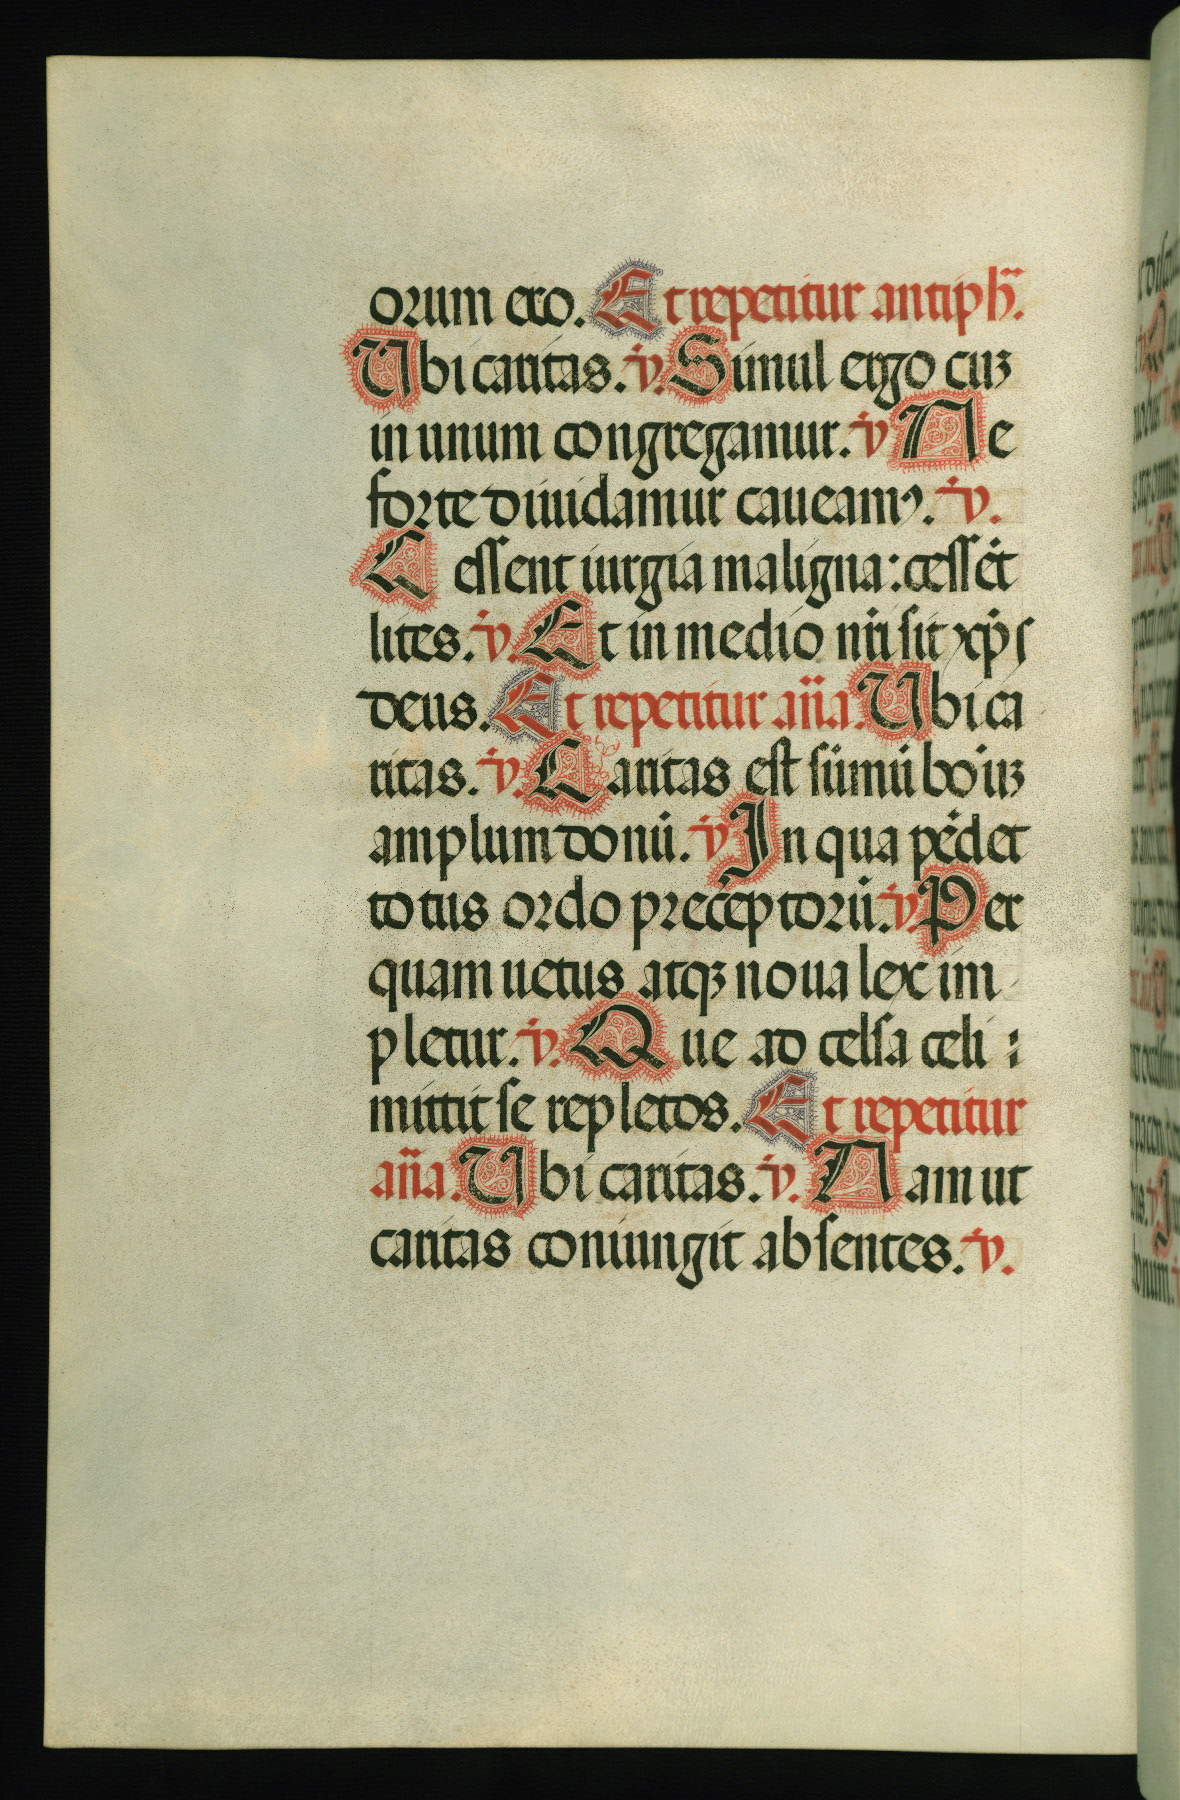 orum ero. Et repetitur antiph̃.
Ubi caritas. v̇. Simul ergo cuʒ
in unum congregamur. v̇ Ne
forte diuidamur caueamꝰ. v̇.
Cessent iurgia maligna: cessẽt
lites. v̇. Et in medio nr̃i sit xp̃s
deus. Et repetitur añа. Ubi ca
ritas. v̇. Caritas est sũmũ bonũʒ
amplum donũ. v̇ In qua pẽdet
totus ordo preceptorũ. v̇. Per
quam uetus atqʒ noua lex im
pletur. v̇. Que ad celsa celi :
mittit se repletos. Et repetitur
aña. Ubi caritas. v̇. Nam ut
caritas coniungit absentes. v̇.